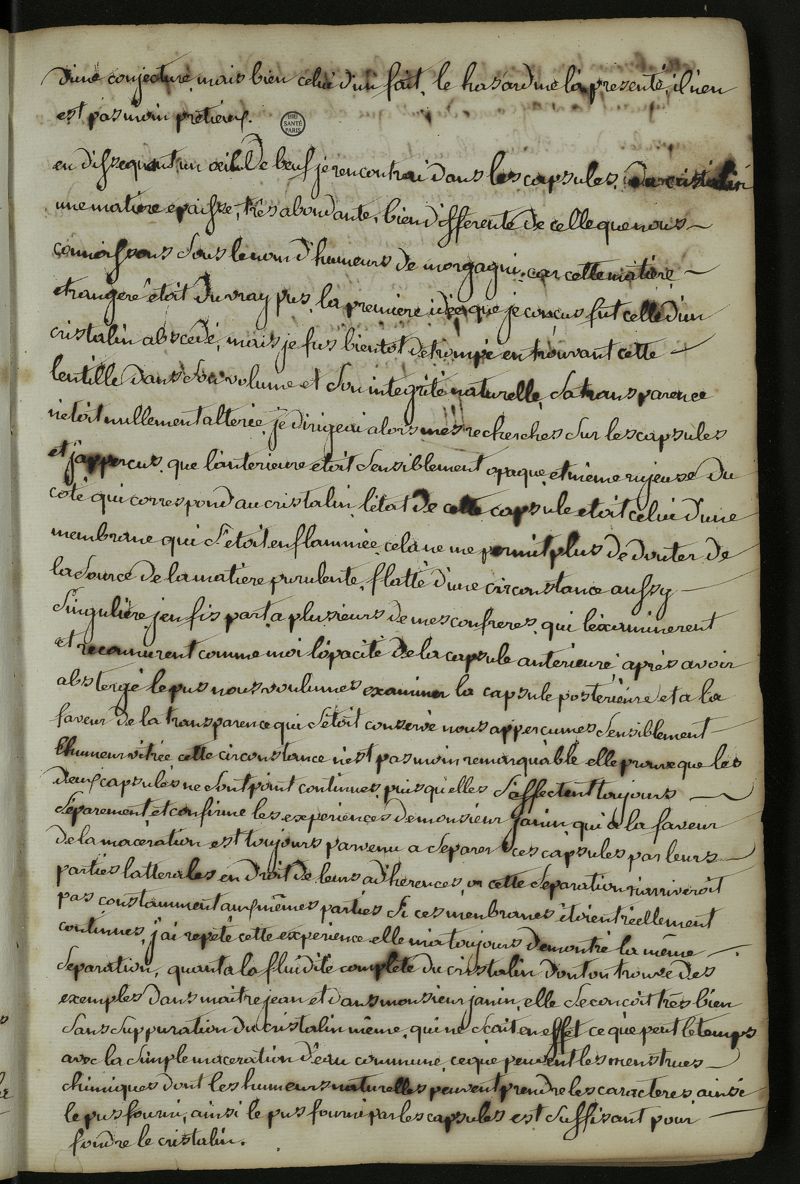 d'une conjecture mais bien celui d'un fait, le hasard me l'a presenté, il n'en
est pas moin pretieux.
BIU
SANTÉ
PARIS
en dissequant un oeil de beuf je rencontrai dans les capsules du cristalin
une matiere epaisse, très abondante, bien differente de celle que nous
connoissons sous le nom d'humeurs de morgagni, car cette matiere
etrangere etoit du vray pus, la premiere idée que je concus fut celle d'un
cristalin abscedé, mais je fus bientot detrompé en trouvant cette
lentille dans son volume et son integrité naturelle, sa transparence
n'etoit nullement alterée, je dirigeai alors mes recherches sur les capsules
et j'apperçus que l'anterieure etoit sensiblement opaque, et même rujeuse du
coté qui correspond au cristalin, l'etat de cette capsule etoit celui d'une
membrane qui s'etoit enflammée, cela ne me permit plus de douter de
la source de la matiere purulente, flatté d'une circonstance aussy
singulière j'en fis part a plusieurs de mes confreres, qui l'examinerent
et reconnurent comme moi l'opacité de la capsule anterieure après avoir
abstergé le pus nous voulumes examiner la capsule posterieure et a la
faveur de la transparence qui s'etoit conservé nous apperçumes sensiblement
l'humeur vitrée, cette circonstance n'est pas moin remarquable elle prouve que les
deux capsules ne sont point continues, puis qu'elles s'affectent toujours
séparement, et confirme les experiences de monsieur janin, qui a la faveur
de la maceration est toujours parvenu a separer ces capsules par leurs
parties latterales en droit de leurs adhérences, or cette separation n'arriveroit
pas constamment aux mêmes parties si ces membranes étoient réellement
continues, j'ai repeté cette experience elle m'a toujours demontré la même
separation, quant a la fluidité complete du cristalin dont on trouve des
exemples dans maitre jean et dans monsieur janin, elle se conçoit très bien
sans suppuration du cristalin même, qui ne scait en effet ce que peut le temps
avec la simple maceration d'eau commune, ce que peuvent les menstrues
chimiques dont les humeurs naturelles peuvent prendre les caracteres, ainsi
le pus fourni, ainsi le pus fourni par les capsules est suffisant pour
fondre le cristalin.